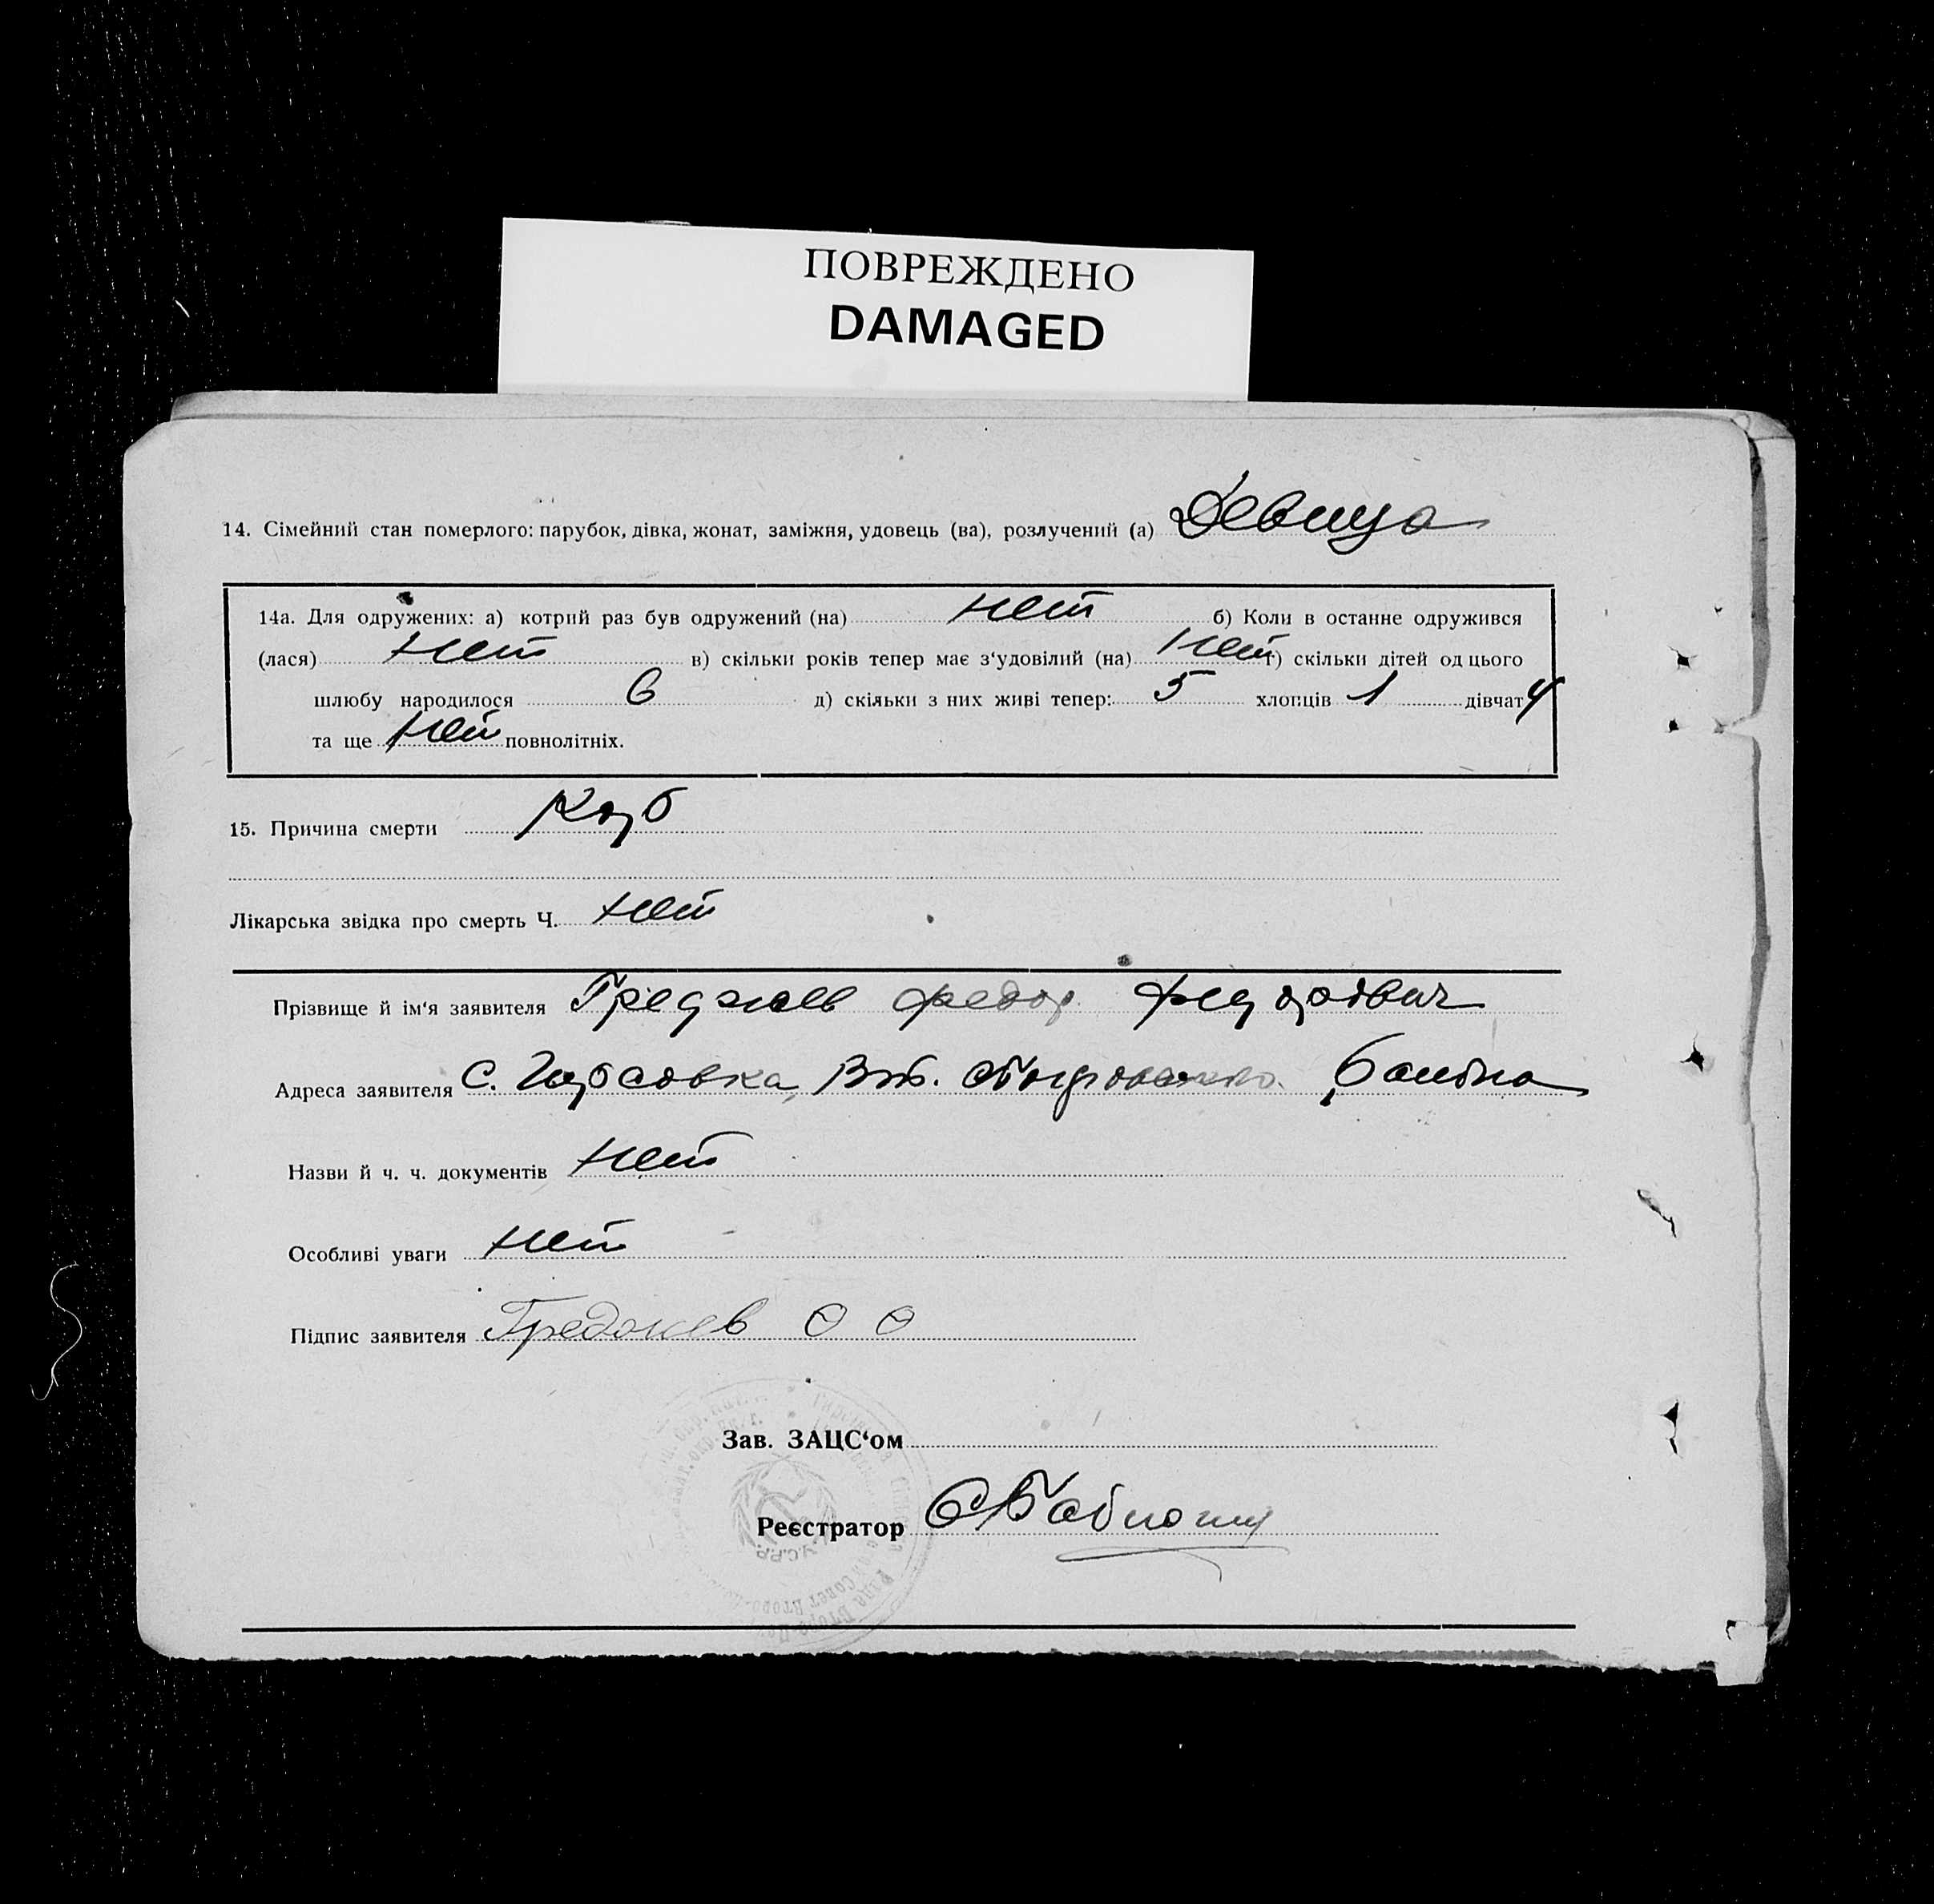 ПОВРЕЖДЕНО
DAMAGED
14. Сімейний стан померлого: парубок, дівка, жонат, заміжня, удовець (ва), розлучений (а) Девица
14а. Для одружених: а) котрий раз був одружений (на) нет б) Коли в останне одружився
(лася) нет в) скільки років тепер має з‘удовілий (на) нет г) скільки дітей од цього
шлюбу народилося 6 д) скільки з них живі тепер: 5 хлопців 1 дівчат 4
та ще нет повнолітніх.
15. Причина смерти
Лікарська звідка про смерть Ч. нет
Прізвище й ім‘я заявителя Греджев Федор Федорович
Адреса заявителя с.
Назви й ч. ч. документів нет
Особливі уваги нет
Підпис заявителя
Зав. ЗАЦС‘ом
Реєстратор
У.С.Р.Р.